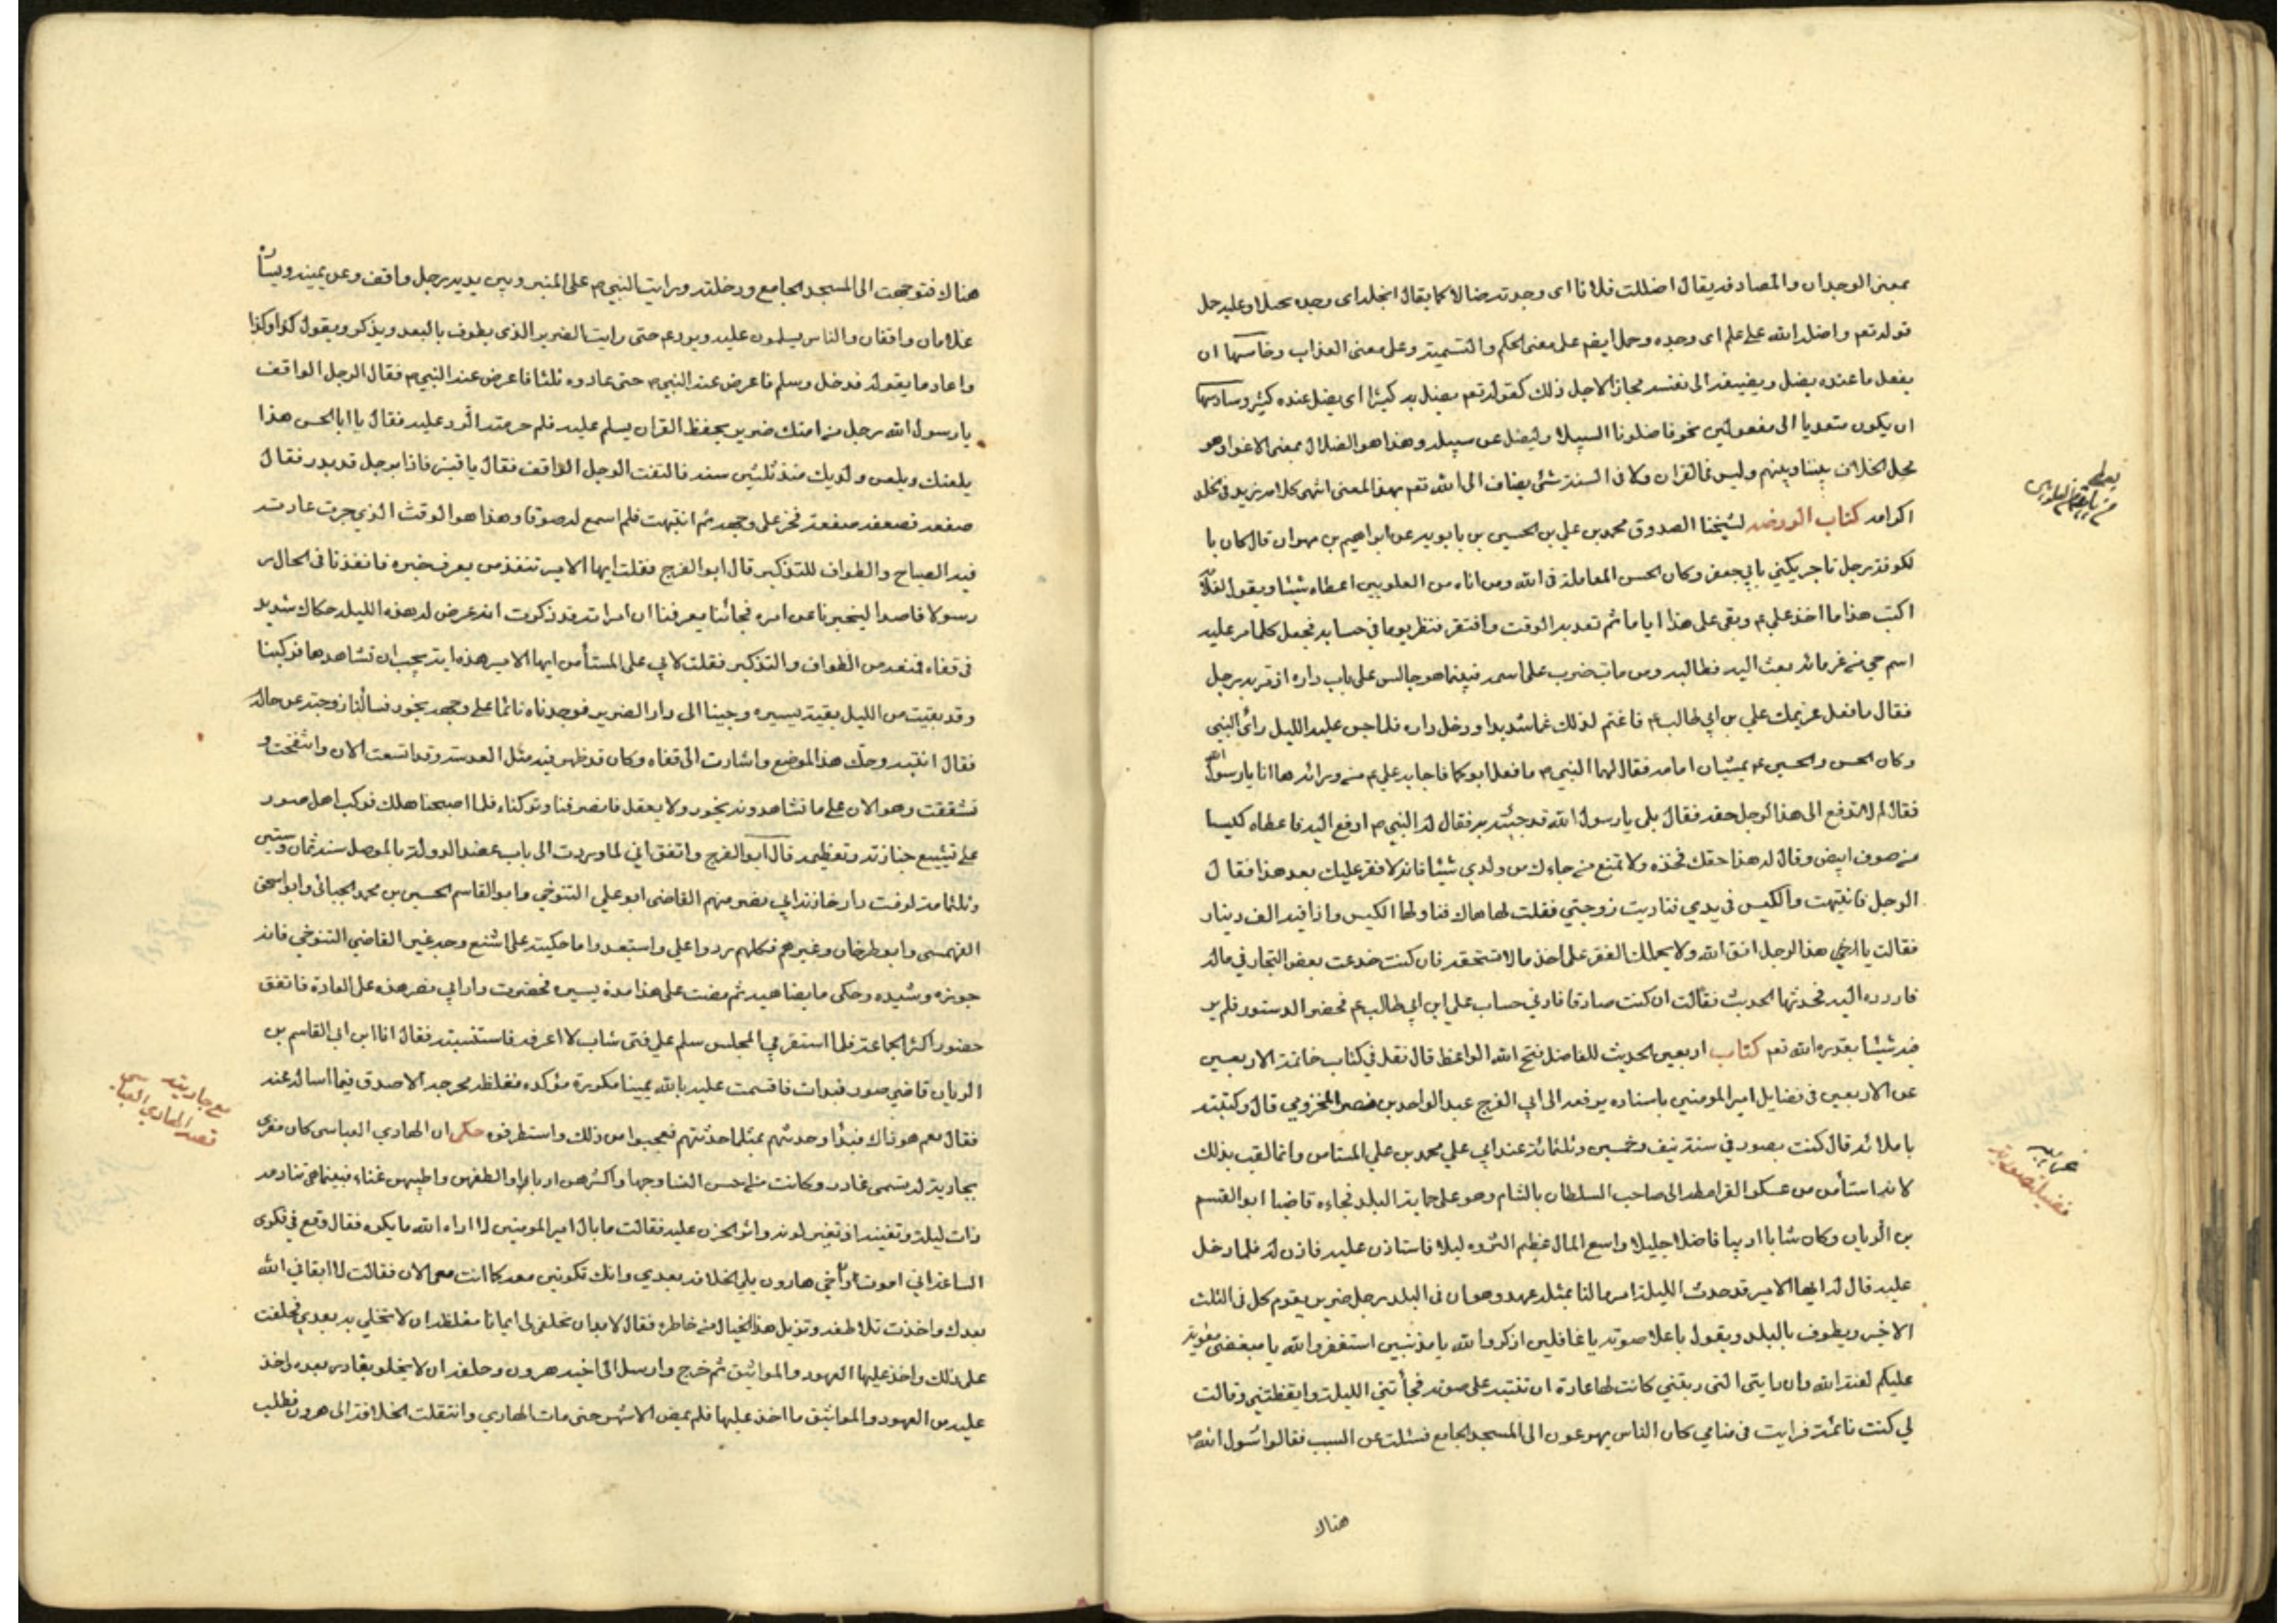 بمعنى الوجدان والمصادفه يقال اضللت فلانا اى وجدته ضالا كما يقال ابخلته اى وجدته بخيلا وعليه حمل
قوله تعم واضله الله على علم اى وجده وحمل ايضم على معنى الحكم والتسمية وعلى معنى العذاب وخامسها ان
يفعل ما عنده يضل ويضيفه الى نفسه مجازا لاجل ذلك كقوله تعم يضل به كثيرا اى يضل عنده كثير وسادسها
ان يكون متعديا الى مفعولين نحو فاضلونا السبيلا وليضل عن سبيله وهذا هو الضلال بمعنى الاغواء وهو
محل الخلاف بيننا وبينهم وليس فى القران ولا فى السنة شئ يضاف الى الله تعم بهذا المعنى انتهى كلامه زيد فى
اكرامه كتاب الروضه لشيخنا الصدوق محمد بن علي بن الحسين بن بابويه عن ابراهيم بن مهران قال كان با
لكوفة رجل تاجر يكنى بابي جعفر وكان الحسن المعاملة فى الله ومن اتاه من العلويين اعطاه شيئا ويقول لغلامه
اكتب هذا ما اخذ علي ع وبقى على هذا اياما ثم قعد به الوقت وافتقر فنظر يوما في حسابه فجعل كلما مر عليه
اسم حي من غرمائه بعث اليه فطالبه ومن مات ضرب على اسمه فبينما هو جالس على باب داره اذ مر به رجل
فقال ما فعل غريمك علي بن ابي طالب ع فاغتم لذلك غما شديدا ودخل داره فلما جن عليه الليل رأى النبي
وكان الحسن والحسين ع يمشيان امامه فقال لهما النبي ص ما فعل ابوكما فاجابه علي ع من ورائه ها انا يا رسول الله
فقال لم لا تدفع الى هذا الرجل حقه فقال بلى يا رسول الله قد جئته به فقال له النبي ص ادفع اليه فاعطاه كيسا
من صوف ابيض وقال له هذا حقك فخذه ولا تمنع من جاءك من ولدي شيئا فانه لا فقر عليك بعد هذا فقال
الرجل فانتبهت والكيس فى يدي فناديت زوجتي فقلت لها هاك فناولتها الكيس واذا فيه الف دينار
فقالت يا هذا الرجل اتق الله ولا يحملك الفقر على اخذ ما لا تستحقه فان كنت خدعت بعض التجار في ماله
فاردده اليه فحدثتها الحديث فقالت ان كنت صادقا فارني حساب علي ابن ابي طالب ع فحضر الدستور فلم ير
فيه شيئا بقدرة الله تعم كتاب اربعين الحديث للفاضل فتح الله الواعظ قال نقل في كتاب خاتمة الاربعين
عن الاربعين فى فضايل امير المومنين باسناده يرفعه الى ابي الفرج عبد الواحد بن نصر المخزومي قال وكتبته
باملائه قال كنت بصور في سنة نيف وخمسين وثلثمائة عند ابي علي محمد بن علي المستامن وانما لقب بذلك
لانه استأمن من عسكر القرامطه الى صاحب السلطان بالشام وهو على حماية البلد فجاءه قاضيها ابو القسم
بن الريان وكان شابا اديبا فاضلا جليلا واسع المال عظيم الثروه ليلا فاستاذن عليه فاذن له فلما دخل
عليه قال له ايها الامير قد حدث الليلة امر ما لنا بمثله عهد وهو ان فى البلد رجل ضرير يقوم كل فى الثلث
الاخير ويطوف بالبلد ويقول باعلا صوته يا غافلين اذكروا الله يا مذنبين استغفروا الله يا مبغضى معوية
عليكم لعنة الله وان رايتى التى ربتني كانت لها عادة ان تنتبه على صوته فجأتني الليلة وايقظتني وقالت
لي كنت نائمة فرايت فى منامي كان الناس يهرعون الى المسجد الجامع فسئلت عن السبب فقالوا رسول الله ص
هناك
هناك فتوجهت الى المسجد الجامع ودخلته ورايت النبي ص على المنبر وبين يديه رجل واقف وعن يمينه ويساره
غلامان واقفان والناس يسلمون عليه ويرد عليهم حتى رايت الضرير الذى يطوف بالبلد ويذكر ويقول كذا وكذا
واعاد ما يقوله فدخل وسلم فاعرض عنه النبي ص حتى عاوده ثلثا فاعرض عنه النبي ص فقال الرجل الواقف
يا رسول الله رجل من امتك ضرير يحفظ القران يسلم عليك فلم حرمته الرد عليه فقال يا ابا الحسن هذا
يلعنك ويلعن ولديك منذ ثلثين سنه فالتفت الرجل الواقف فقال يا قنبر فاذا برجل قد بدر فقال
صفعه فصفعه صفعة فخر على وجهه ثم انتبهت فلم اسمع له صوتا وهذا هو الوقت الذي جرت عادته
فيه الصياح والطواف للتذكير قال ابو الفرج فقلت ايها الامير تنفذ من يعرف خبره فانفذنا فى الحال ر
رسولا قاصدا ليخبرنا عن امره فجائنا يعرفنا ان امراته قد ذكرت انه عرض له هذه الليلة حكاك شديد
فى قفاه فمنعه من الطواف والتذكير فقلت لابي علي المستأمن ايها الامير هذه اية يجب ان نشاهدها فركبنا
وقد بقيت من الليل بقية يسيره وجينا الى دار الضرير فوجدناه نائما على وجهه يخور فسألنا زوجته عن حاله
فقال انتبه وحك هذا الموضع واشارت الى قفاه وكان قد ظهر فيه مثل العدسة وقد اتسعت الان وانتفخت و
تشققت وهو الان على ما تشاهدونه يخور ولا يعقل فانصرفنا وتركناه فلما اصبحنا هلك فركب اهل صور
على تشييع جنازته وتعظيمه قال ابو الفرج واتفق اني لما وردت الى باب عضد الدولة بالموصل سنة ثمان وستين
وثلثمائة لزمت دار خازنه ابي نصر ومنهم القاضى ابو علي التنوخي وابو القاسم الحسين بن محمد الجبائى وابو اسحق
وابو طرخان وغيرهم فكلهم ردوا علي واستبعدوا ما حكيته على اشنع وجه غير القاضي التنوخي فانه
جوزه وشيده وحكى ما يضاهيه ثم مضت على هذا مدة يسيره فحضرت دار ابي نصر هذه على العادة فاتفق
حضور اكثر الجماعة فلما استقر بي المجلس سلم علي فتى شاب لا اعرفه فاستنسبته فقال انا ابن ابى القاسم بن
الريان قاضي صور فبدات فاقسمت عليه بالله يمينا مكررة مؤكده مغلظه محرجه الا صدق فيما اساله عنه
فقال نعم فبدا وحدثهم بمثل ما حدثتهم فعجبوا من ذلك واستطرفوه حكى ان الهادي العباسى كان مغرى
بجارية له تسمى غادر وكانت من احسن النسا وجها واكثرهن ادبا والطفهن واطيبهن غناء فبينما هي تنادمه
ذات ليلة وتغنيه اذ تغير لونه واثر الحزن عليه فقالت ما بال امير المومنين لا اراه الله ما يكره فقال وقع في فكرى
الساعة اني اموت واخي هارون يلي الخلافه بعدي وانك تكونين معه كما انت معى الان فقالت لا ابقاني الله
بعدك واخذت تلاطفه وتزيل هذا الخيال من خاطره فقال لا بد ان تحلفى لى ايمانا مغلظه ان لا تختلي به بعدي فحلفت
على ذلك واخذ عليها العهود والمواثيق ثم خرج وارسل الى اخيه هرون وحلفه ان لا يخلو بغادر بعده واخذ
عليه من العهود والمواثيق ما اخذ عليها فلم يمض الا شهر حتى مات الهادي وانتقلت الخلافة الى هرون فطلب
قصة الهادي العباسى
مع جاريته